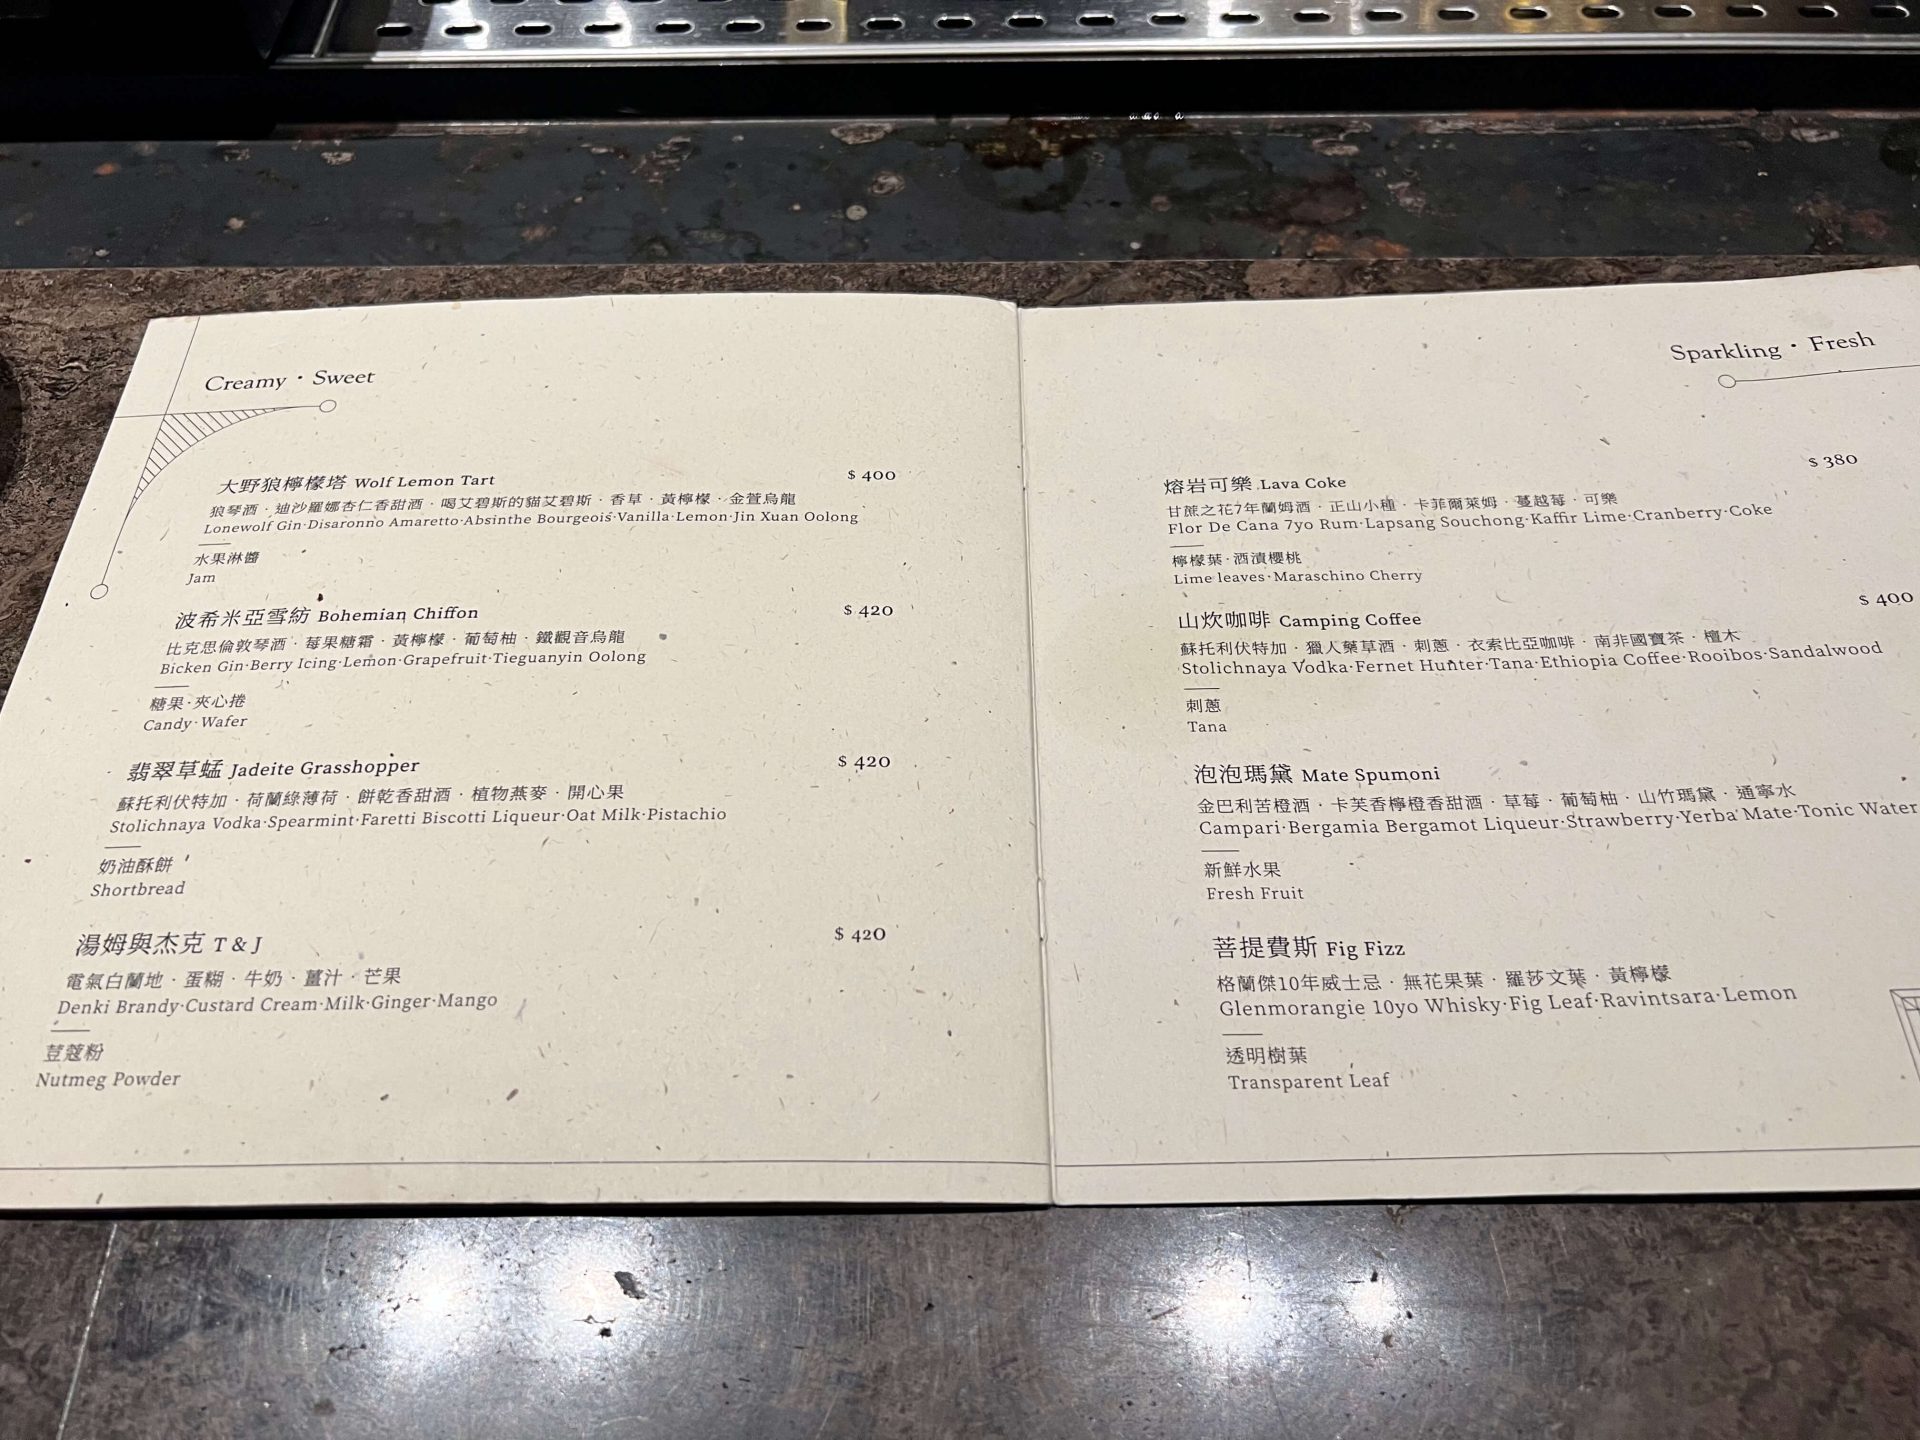 Creamy・Sweet
大野狼檸檬塔 Wolf Lemon Tart $ 400
狼琴酒・迪沙羅娜杏仁香甜酒・喝艾碧斯的貓艾碧斯・香草・黃檸檬・金萱烏龍
Lonewolf Gin·Disaronno Amaretto·Absinthe Bourgeois·Vanilla·Lemon·Jin Xuan Oolong
水果淋醬
Jam
波希米亞雪紡 Bohemian Chiffon $ 420
比克思倫敦琴酒・莓果糖霜・黃檸檬・葡萄柚・鐵觀音烏龍
Bicken Gin·Berry Icing·Lemon·Grapefruit·Tieguanyin Oolong
糖果・夾心捲
Candy·Wafer
翡翠草蜢 Jadeite Grasshopper $ 420
蘇托利伏特加・荷蘭綠薄荷・餅乾香甜酒・植物燕麥・開心果
Stolichnaya Vodka·Spearmint·Faretti Biscotti Liqueur·Oat Milk·Pistachio
奶油酥餅
Shortbread
湯姆與杰克 T & J $ 420
電氣白蘭地・蛋糊・牛奶・薑汁・芒果
Denki Brandy·Custard Cream·Milk·Ginger·Mango
荳蔻粉
Nutmeg Powder
Sparkling・Fresh
熔岩可樂 Lava Coke $ 380
甘蔗之花7年蘭姆酒・正山小種・卡菲爾萊姆・蔓越莓・可樂
Flor De Cana 7yo Rum·Lapsang Souchong·Kaffir Lime·Cranberry·Coke
檸檬葉・酒漬櫻桃
Lime leaves·Maraschino Cherry
山炊咖啡 Camping Coffee $ 400
蘇托利伏特加・獵人藥草酒・刺蔥・衣索比亞咖啡・南非國寶茶・檀木
Stolichnaya Vodka·Fernet Hunter·Tana·Ethiopia Coffee·Rooibos·Sandalwood
刺蔥
Tana
泡泡瑪黛 Mate Spumoni
金巴利苦橙酒・卡芙香檸橙香甜酒・草莓・葡萄柚・山竹瑪黛・通寧水
Campari·Bergamia Bergamot Liqueur·Strawberry·Yerba Mate·Tonic Water
新鮮水果
Fresh Fruit
菩提費斯 Fig Fizz
格蘭傑10年威士忌・無花果葉・羅莎文葉・黃檸檬
Glenmorangie 10yo Whisky·Fig Leaf·Ravintsara·Lemon
透明樹葉
Transparent Leaf